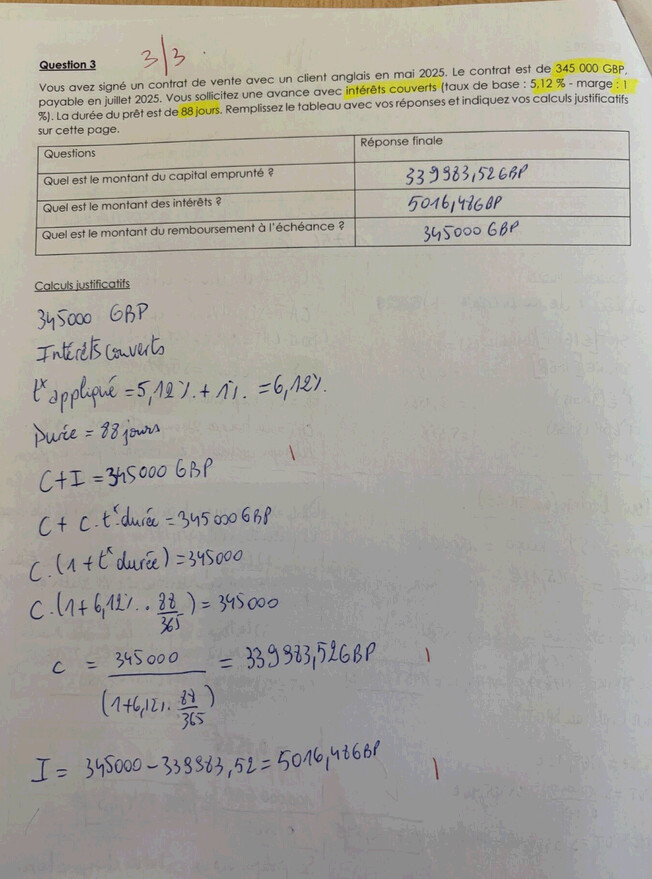 Question 3
3/3.
Vous avez signé un contrat de vente avec un client anglais en mai 2025. Le contrat est de 345 000 GBP,
payable en juillet 2025. Vous sollicitez une avance avec intérêts couverts (taux de base : 5,12 % - marge : 1
%). La durée du prêt est de 88 jours. Remplissez le tableau avec vos réponses et indiquez vos calculs justificatifs
sur cette page.
Questions Réponse finale
Quel est le montant du capital emprunté ? 339983,52GBP
Quel est le montant des intérêts ? 5016,48GBP
Quel est le montant du remboursement à l'échéance ? 345000 GBP
Calculs justificatifs
345000 GBP
Intérêts couverts
tx appliqué = 5,12%. + 1%. = 6,12%.
Durée = 88 jours
C+I = 345000 GBP 1
C + C.tx.durée = 345000GBP
C.(1+tx durée) = 345000
C.(1+6,12%. . 88/365) = 345000
C = 345000/(1+6,12%. 88/365) = 339983,52GBP 1
I = 345000-339983,52 = 5016,48GBP 1